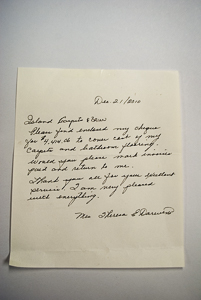 Dec. 21/2010
Island Carpets
Please find enclosed my cheque
for to cover cost of my
carpets and bathroom flooring.
Would you please mark invoice
paid and return to me.
Thank you all for your excellent
service. I am very pleased
with everything.
Mrs Theresa